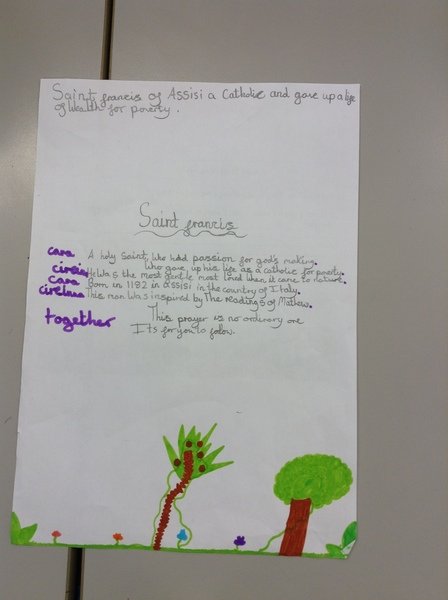 Saint francis of Assisi a Catholic and gave up a life
of wealth for poverty.
Saint francis
cara A holy Saint, who had passion for god's making.
Who gave up his life as a catholic for poverty.
cara He was the most gentle most loved when it came to nature.
Born in 1182 in assisi in the country of Italy.
This man was inspired by The readings of Mathew.
together This prayer is no ordinary one
Its for you to follow.